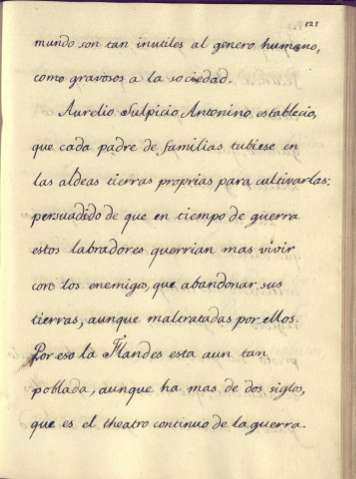 121
mundo son tan inutiles al genero humano,
como gravosos a la sociedad.
Aurelio Sulpicio Antonino establecio,
que cada padre de familias tubiese en
las aldeas tierras proprias para cultivarlas:
persuadido de que en tiempo de guerra
estos labradores querrian mas vivir
con los enemigos, que abandonar sus
tierras, aunque maltratadas por ellos.
Por eso la Flandes esta aun tan
poblada, aunque ha mas de dos siglos,
que es el theatro continuo de la guerra.